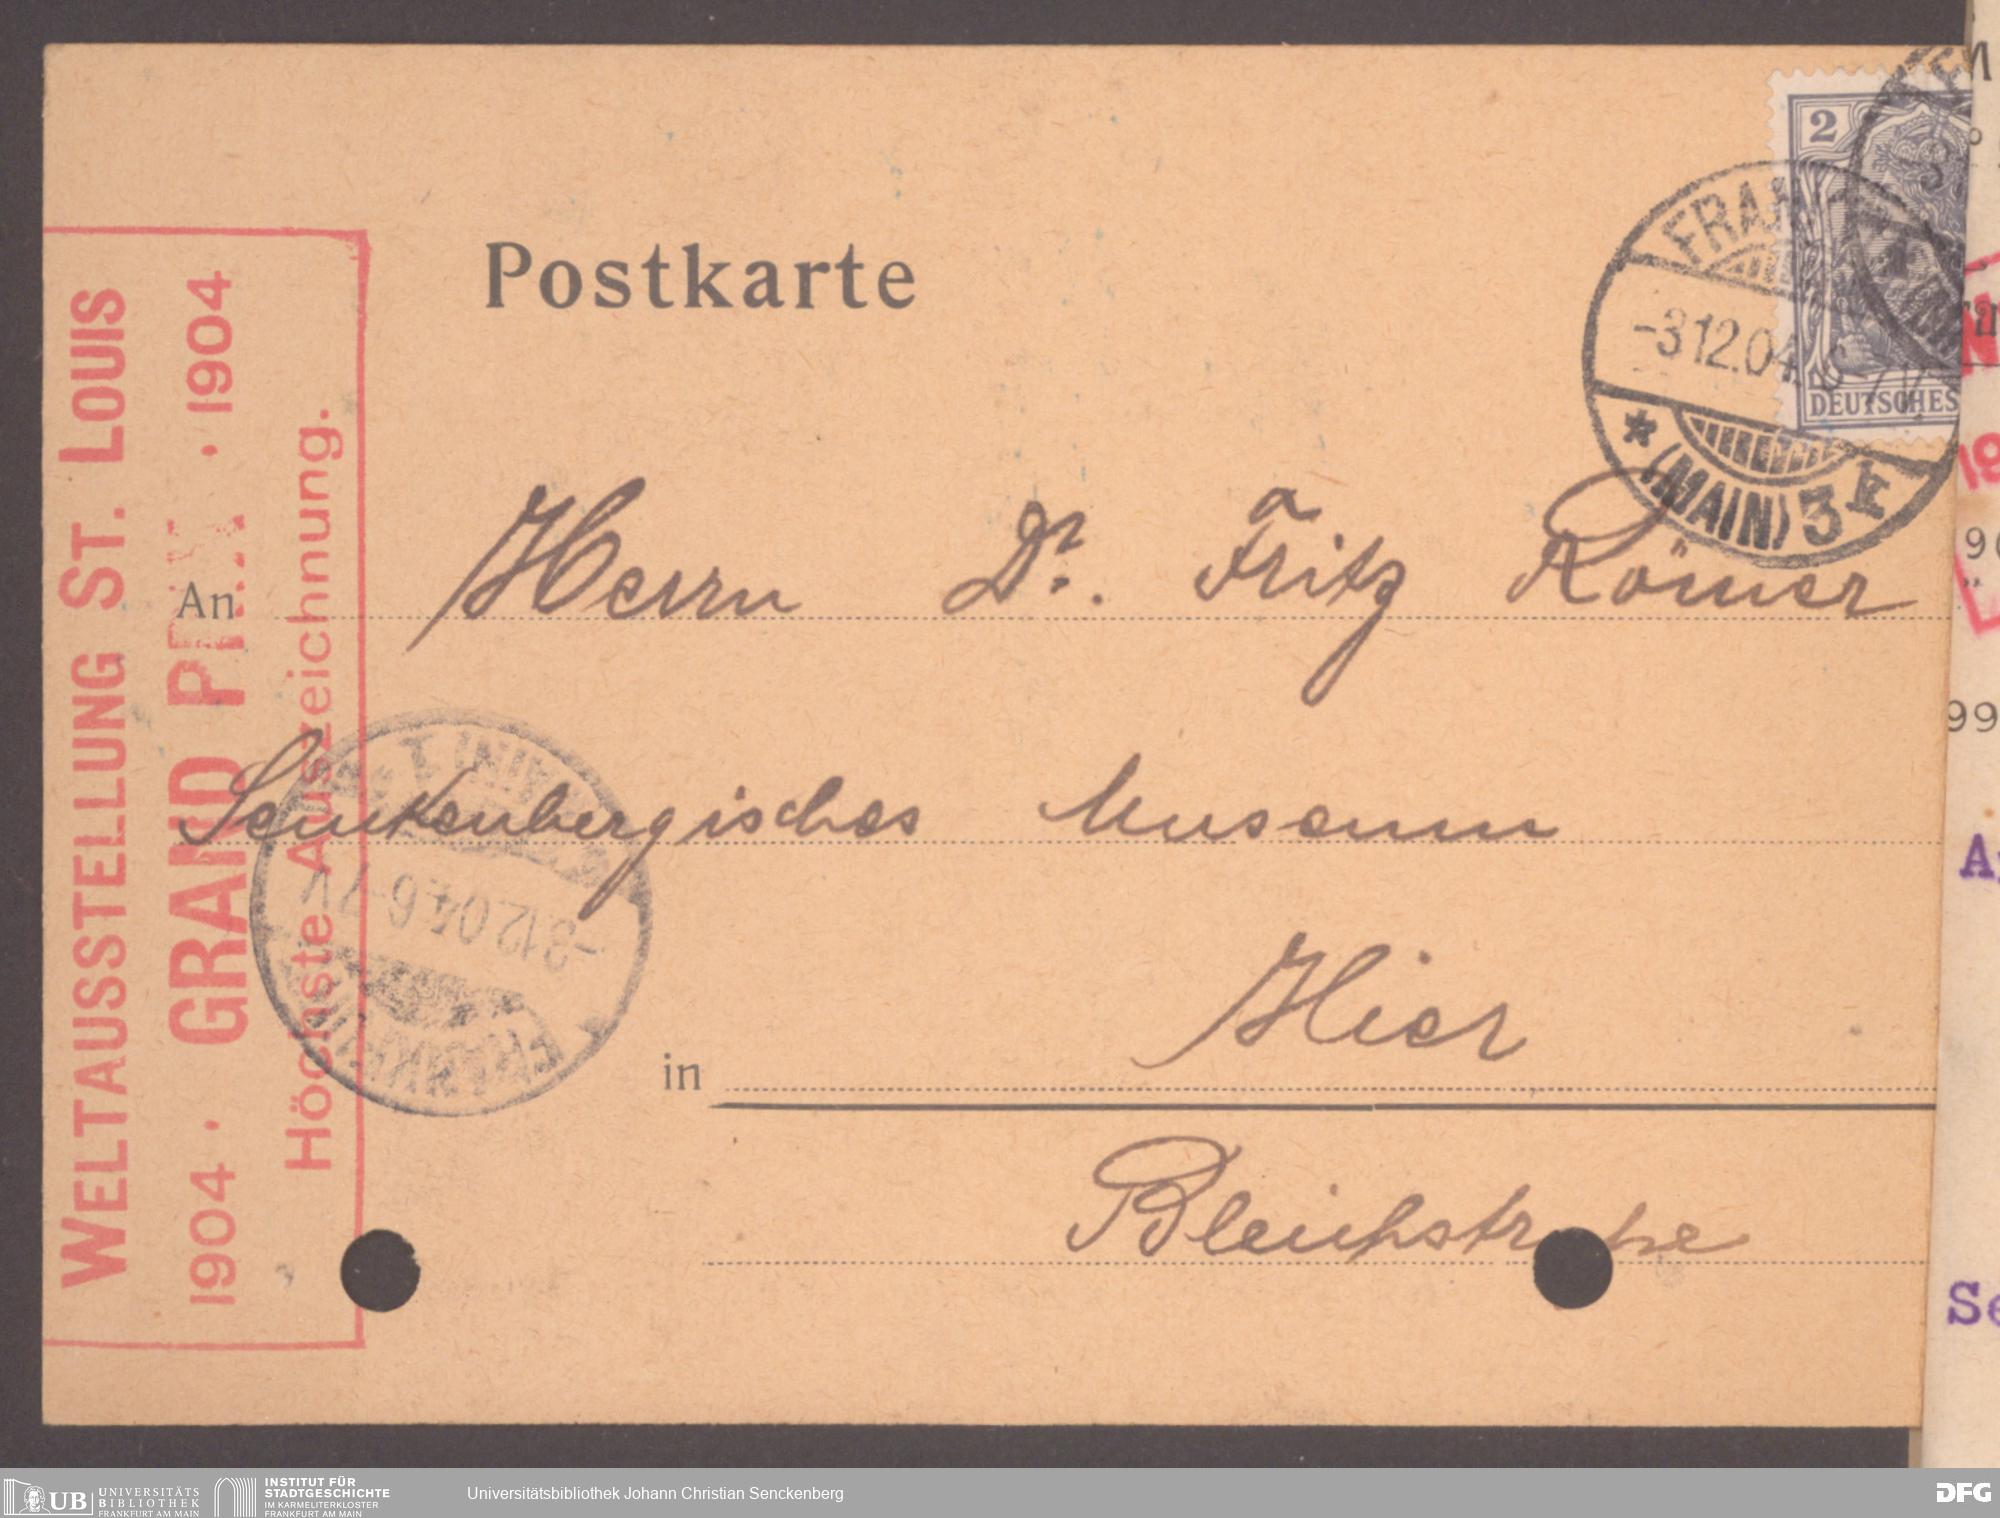 Postkarte
WELTAUSSTELLUNG ST. LOUIS
1904 · GRAND PRIX · 1904
Höchste Auszeichnung.
2
DEUTSCHES
FRANKFURT
-3.12.04. 6-7 V.
* (MAIN) 3 k
An Herrn Dr. Fritz Römer
Senckenbergisches Museum
in Hier
Bleichstraße
FRANKFURT
-3.12.04. 6-7 V
(MAIN) 1
99
UB UNIVERSITÄTS
BIBLIOTHEK
FRANKFURT AM MAIN
INSTITUT FÜR
STADTGESCHICHTE
IM KARMELITERKLOSTER
FRANKFURT AM MAIN
Universitätsbibliothek Johann Christian Senckenberg
DFG